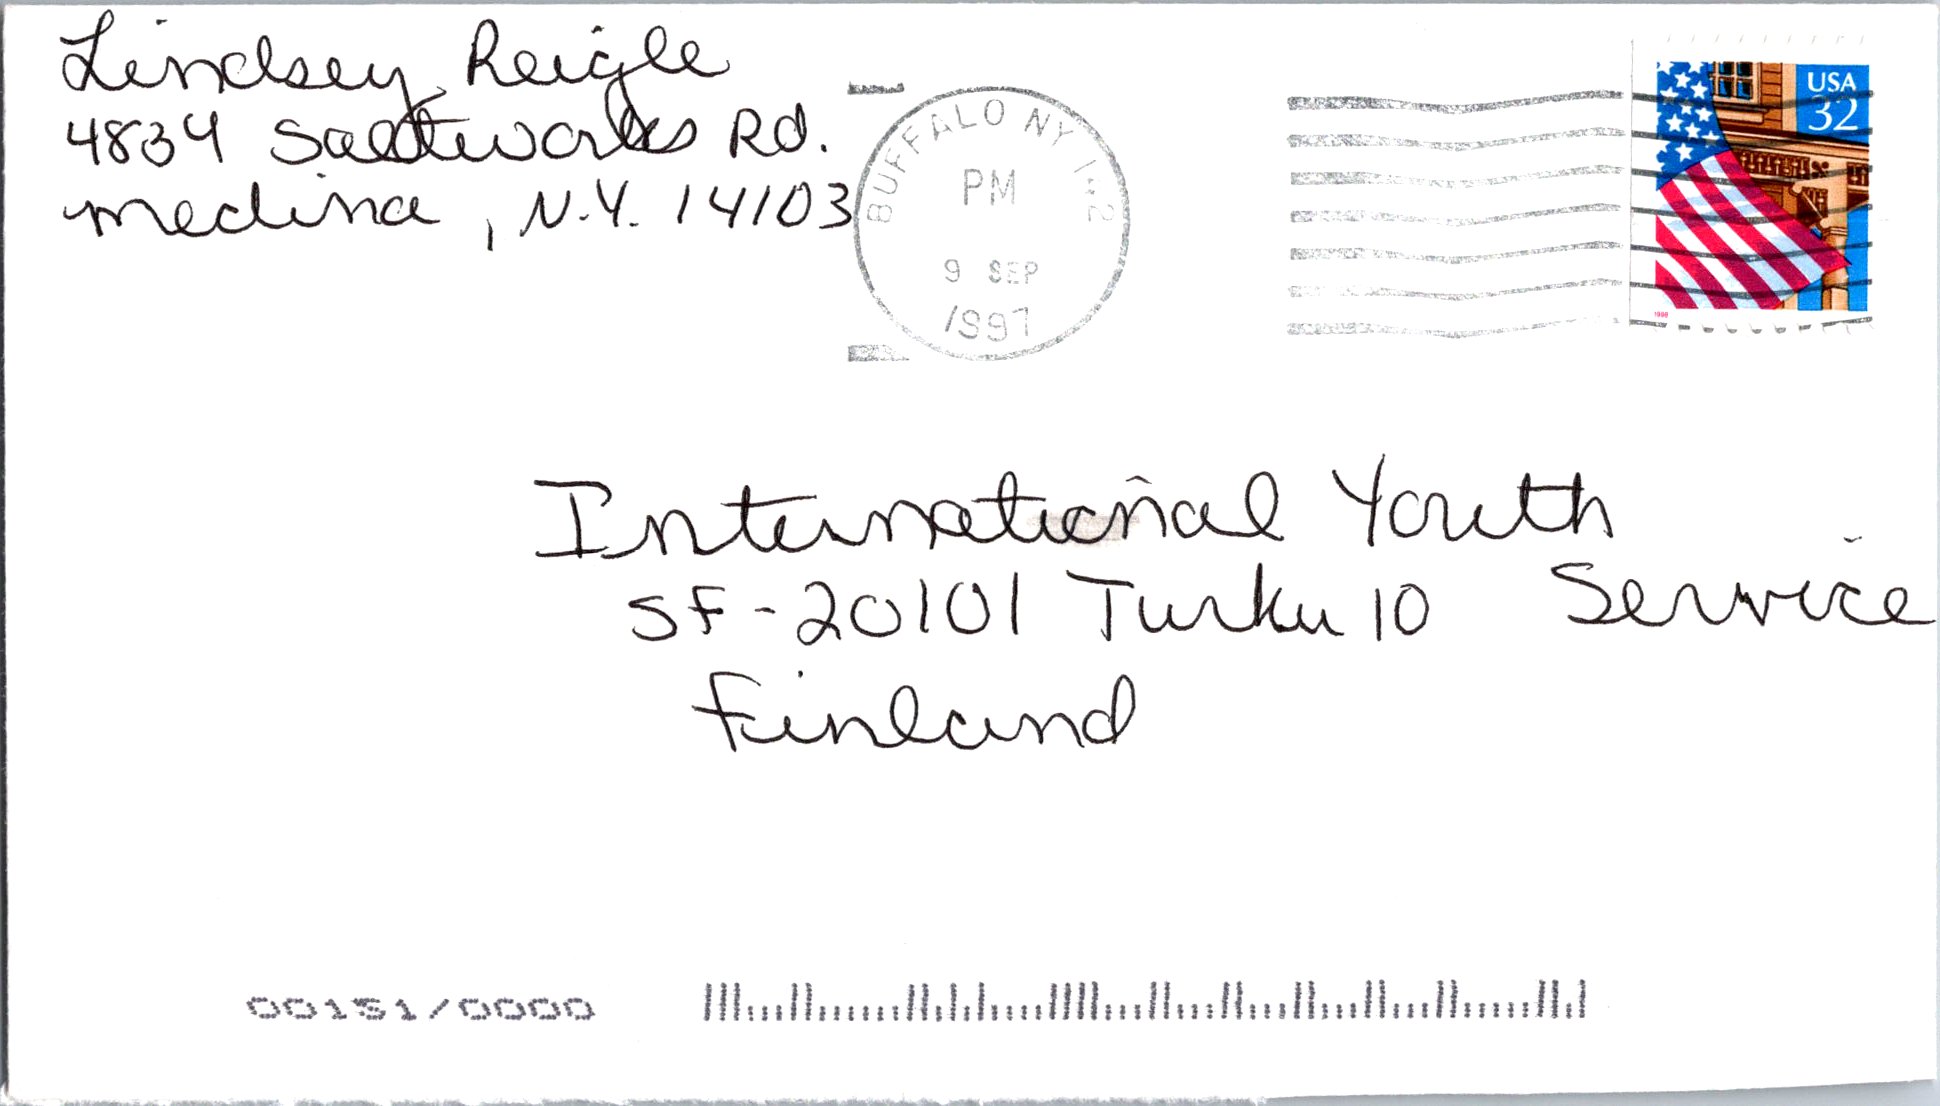 Lindsey Reigle
4834 Saltworks Rd.
medina, N.Y. 14103
BUFFALO NY 142
PM
9 SEP
1997
USA
32
1996
International Youth
Service
SF-20101 Turku 10
Finland
00151/0000